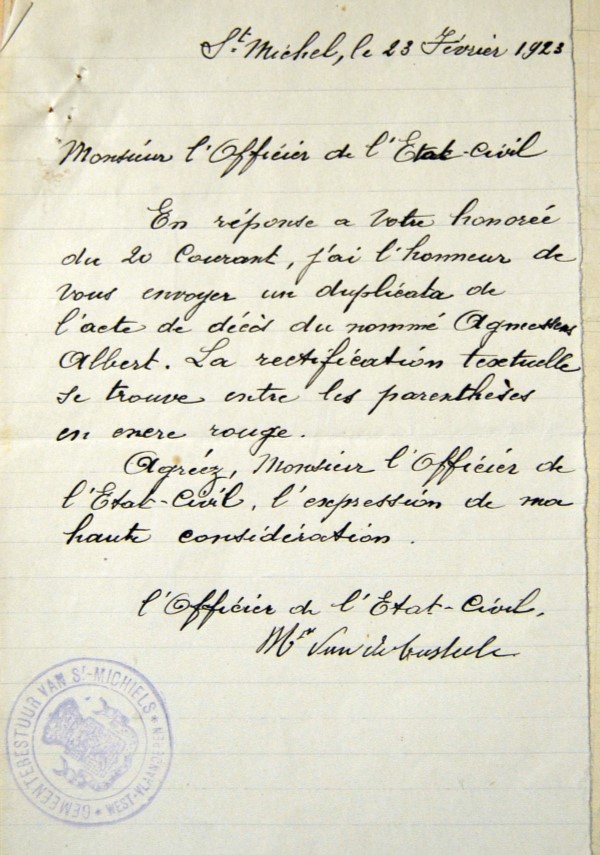 St Michel, le 23 Février 1923
Monsieur l'Officier de l'Etat-Civil
En réponse a Votre honorée
du 20 Courant, j'ai l'honneur de
Vous envoyer un duplicata de
l'acte de décès du nommé Agmessens
Albert. La rectification textuelle
se trouve entre les parenthèses
en encre rouge.
Agréez, Monsieur l'Officier de
l'Etat-Civil, l'expression de ma
haute considération.
l'Officier de l'Etat-Civil,
Van de
GEMEENTEBESTUUR VAN ST-MICHIELS
* WEST-VLAANDEREN *